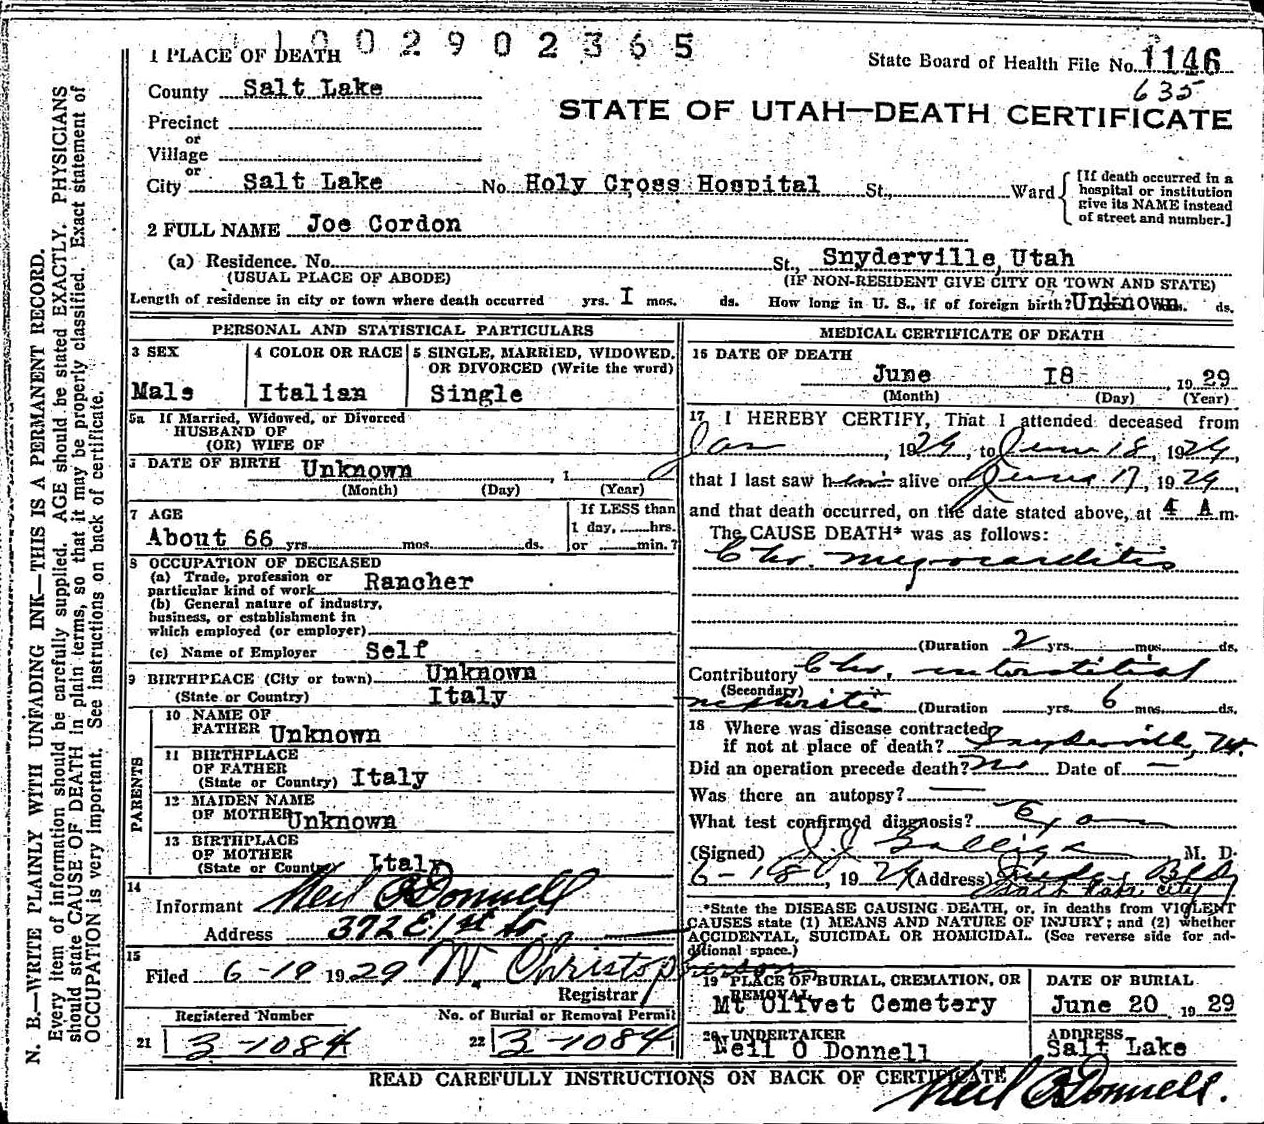 1002902365
1 PLACE OF DEATH
State Board of Health File No. 1146
635
County Salt Lake
STATE OF UTAH—DEATH CERTIFICATE
Precinct
or
Village
or
City Salt Lake No. Holy Cross Hospital St., Ward
[If death occurred in a hospital or institution give its NAME instead of street and number.]
2 FULL NAME Joe Cordon
(a) Residence. No. St., Snyderville, Utah
(USUAL PLACE OF ABODE) (IF NON-RESIDENT GIVE CITY OR TOWN AND STATE)
Length of residence in city or town where death occurred yrs. I mos. ds. How long in U. S., if of foreign birth? Unknown ds.
PERSONAL AND STATISTICAL PARTICULARS
3 SEX
Male
4 COLOR OR RACE
Italian
5 SINGLE, MARRIED, WIDOWED, OR DIVORCED (Write the word)
Single
5a If Married, Widowed, or Divorced
HUSBAND OF
(OR) WIFE OF
DATE OF BIRTH Unknown , 1
(Month) (Day) (Year)
7 AGE
About 66 yrs. mos. ds.
If LESS than
1 day, hrs.
or min.?
8 OCCUPATION OF DECEASED
(a) Trade, profession or
particular kind of work Rancher
(b) General nature of industry,
business, or establishment in
which employed (or employer)
(c) Name of Employer Self
9 BIRTHPLACE (City or town) Unknown
(State or Country) Italy
PARENTS
10 NAME OF
FATHER Unknown
11 BIRTHPLACE
OF FATHER
(State or Country) Italy
12 MAIDEN NAME
OF MOTHER Unknown
13 BIRTHPLACE
OF MOTHER
(State or Country) Italy
14
Informant Neil O'Donnell
Address 372 E. 1st So.
15
Filed 6-19 1929 W. Christopherson
Registrar
Registered Number
21 3-1084
No. of Burial or Removal Permit
22 3-1084
MEDICAL CERTIFICATE OF DEATH
16 DATE OF DEATH
June I8 , 1929
(Month) (Day) (Year)
17 I HEREBY CERTIFY, That I attended deceased from
Jan , 1929, to June 18, 1929,
that I last saw him alive on June 17, 1929,
and that death occurred, on the date stated above, at 4 A m.
The CAUSE DEATH* was as follows:
Chr. myocarditis
(Duration 2 yrs. mos. ds.
Contributory Chr. interstitial
(Secondary)
nephritis (Duration yrs. 6 mos. ds.
18 Where was disease contracted
if not at place of death? Snyderville, Ut.
Did an operation precede death? no Date of —
Was there an autopsy? —
What test confirmed diagnosis? Exam
(Signed) J.J. Galligan M. D.
6-18, 1929 (Address) Bldg
Salt Lake City
*State the DISEASE CAUSING DEATH, or, in deaths from VIOLENT
CAUSES state (1) MEANS AND NATURE OF INJURY; and (2) whether
ACCIDENTAL, SUICIDAL OR HOMICIDAL. (See reverse side for ad-
ditional space.)
19 PLACE OF BURIAL, CREMATION, OR
REMOVAL
Mt Olivet Cemetery
DATE OF BURIAL
June 20 , 1929
20 UNDERTAKER
Neil O Donnell
ADDRESS
Salt Lake
READ CAREFULLY INSTRUCTIONS ON BACK OF CERTIFICATE
Neil O'Donnell.
N. B.—WRITE PLAINLY WITH UNFADING INK—THIS IS A PERMANENT RECORD.
Every item of information should be carefully supplied. AGE should be stated EXACTLY. PHYSICIANS
should state CAUSE OF DEATH in plain terms, so that it may be properly classified. Exact statement of
OCCUPATION is very important. See instructions on back of certificate.